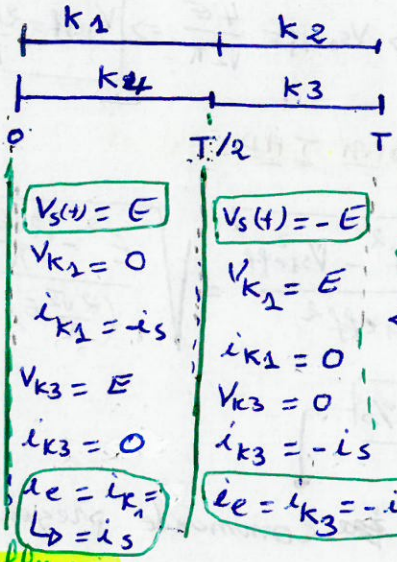 K1 K2
K4 K3
0 T/2 T
Vs(t) = E
VK1 = 0
iK1 = is
VK3 = E
iK3 = 0
ie = iK1 =
↳ = is
Vs(t) = -E
VK1 = E
iK1 = 0
VK3 = 0
iK3 = -is
ie = iK3 = -i